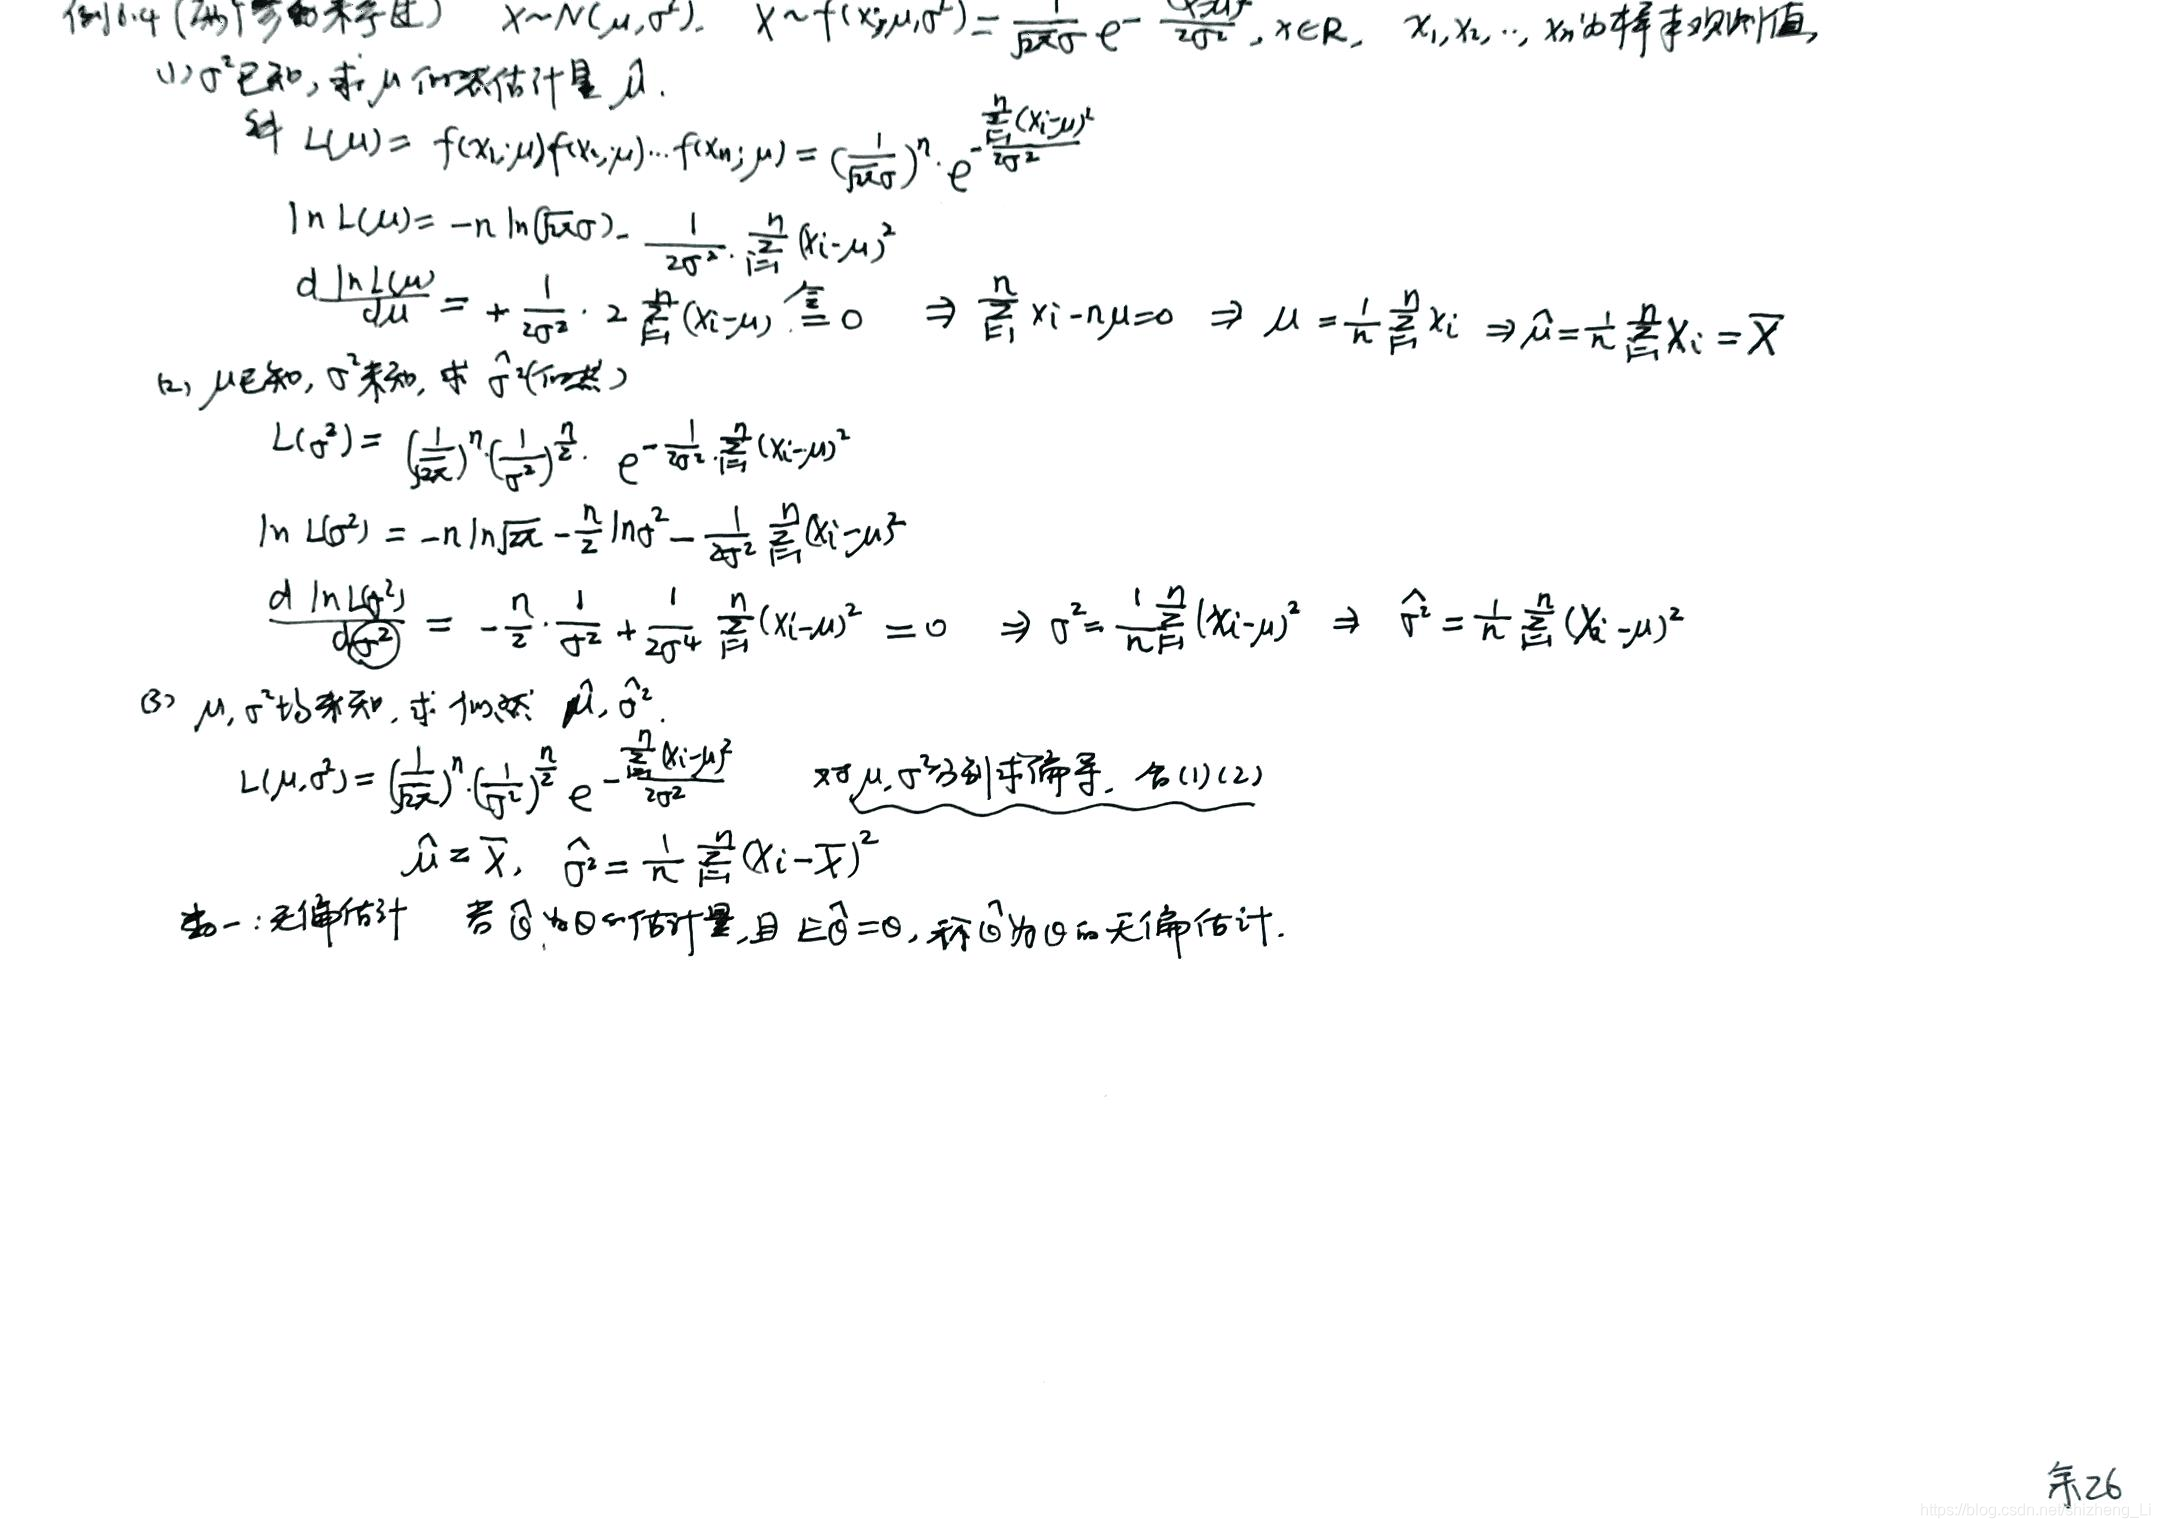 例6.4 (两个参数未考过) X~N(μ,σ²). X~f(x;μ,σ²)=1/(√2π σ) e^-(x-μ)²/2σ², x∈R. x₁,x₂,..,xₙ为样本观测值,
(1) σ²已知,求μ似然估计量 μ̂.
解 L(μ)= f(x₁;μ)f(x₂;μ)...f(xₙ;μ)=(1/(√2π σ))ⁿ·e^-(Σᵢ₌₁ⁿ(xᵢ-μ)²)/2σ²
ln L(μ)= -n ln(√2π σ)- 1/2σ² · Σᵢ₌₁ⁿ (xᵢ-μ)²
d ln L(μ)/dμ = + 1/2σ² · 2 Σᵢ₌₁ⁿ(xᵢ-μ) 令= 0 ⇒ Σᵢ₌₁ⁿ xᵢ-nμ=0 ⇒ μ = 1/n Σᵢ₌₁ⁿ xᵢ ⇒ μ̂ = 1/n Σᵢ₌₁ⁿ Xᵢ = X̄
(2) μ已知, σ²未知, 求 σ̂²(似然)
L(σ²)= (1/√2π)ⁿ·(1/σ²)^n/2 · e^-1/2σ²·Σᵢ₌₁ⁿ(xᵢ-μ)²
ln L(σ²) = -n ln√2π - n/2 lnσ² - 1/2σ² Σᵢ₌₁ⁿ(xᵢ-μ)²
d ln L(σ²)/dσ² = - n/2 · 1/σ² + 1/2σ⁴ Σᵢ₌₁ⁿ(xᵢ-μ)² = 0 ⇒ σ²= 1/n Σᵢ₌₁ⁿ(xᵢ-μ)² ⇒ σ̂² = 1/n Σᵢ₌₁ⁿ (Xᵢ-μ)²
(3) μ, σ²均未知, 求似然 μ̂, σ̂².
L(μ,σ²)= (1/√2π)ⁿ·(1/σ²)^n/2 e^-(Σᵢ₌₁ⁿ(xᵢ-μ)²)/2σ² 对μ,σ²分别求偏导. 合(1)(2)
μ̂ = X̄, σ̂² = 1/n Σᵢ₌₁ⁿ (Xᵢ-X̄)²
:无偏估计 若 θ̂ 为 θ的估计量,且 Eθ̂=θ, 称θ̂为θ的无偏估计.
余26
https://blog.csdn.net/shizheng_Li